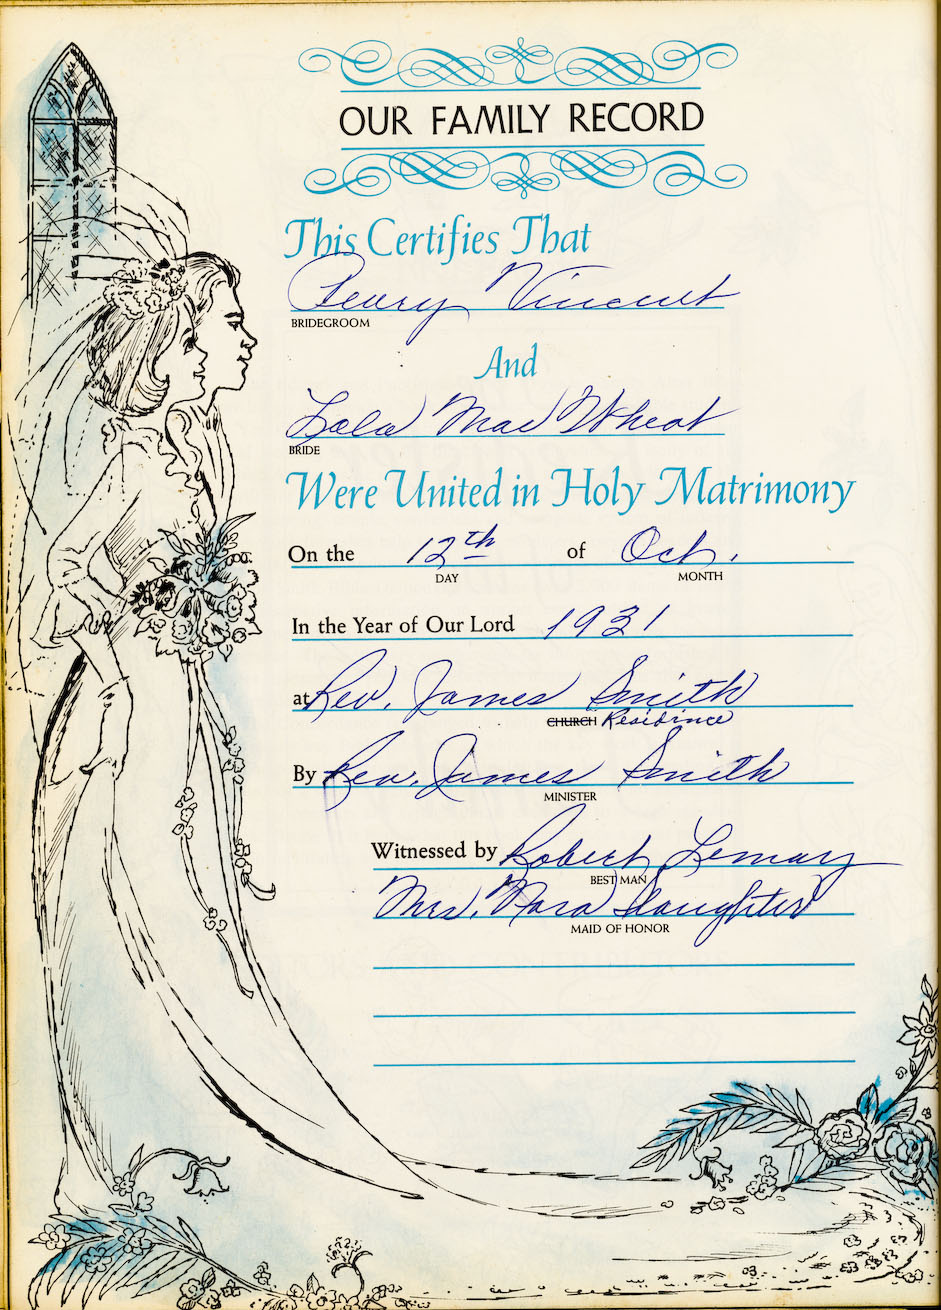 OUR FAMILY RECORD
This Certifies That
Perry Vincent
BRIDEGROOM
And
Lola Mae Wheat
BRIDE
Were United in Holy Matrimony
On the 12th of Oct.
DAY MONTH
In the Year of Our Lord 1931
at Rev. James Smith
CHURCH Residince
By Rev. James Smith
MINISTER
Witnessed by Robert Lemary
BEST MAN
Mrs. Nora Slaughter
MAID OF HONOR